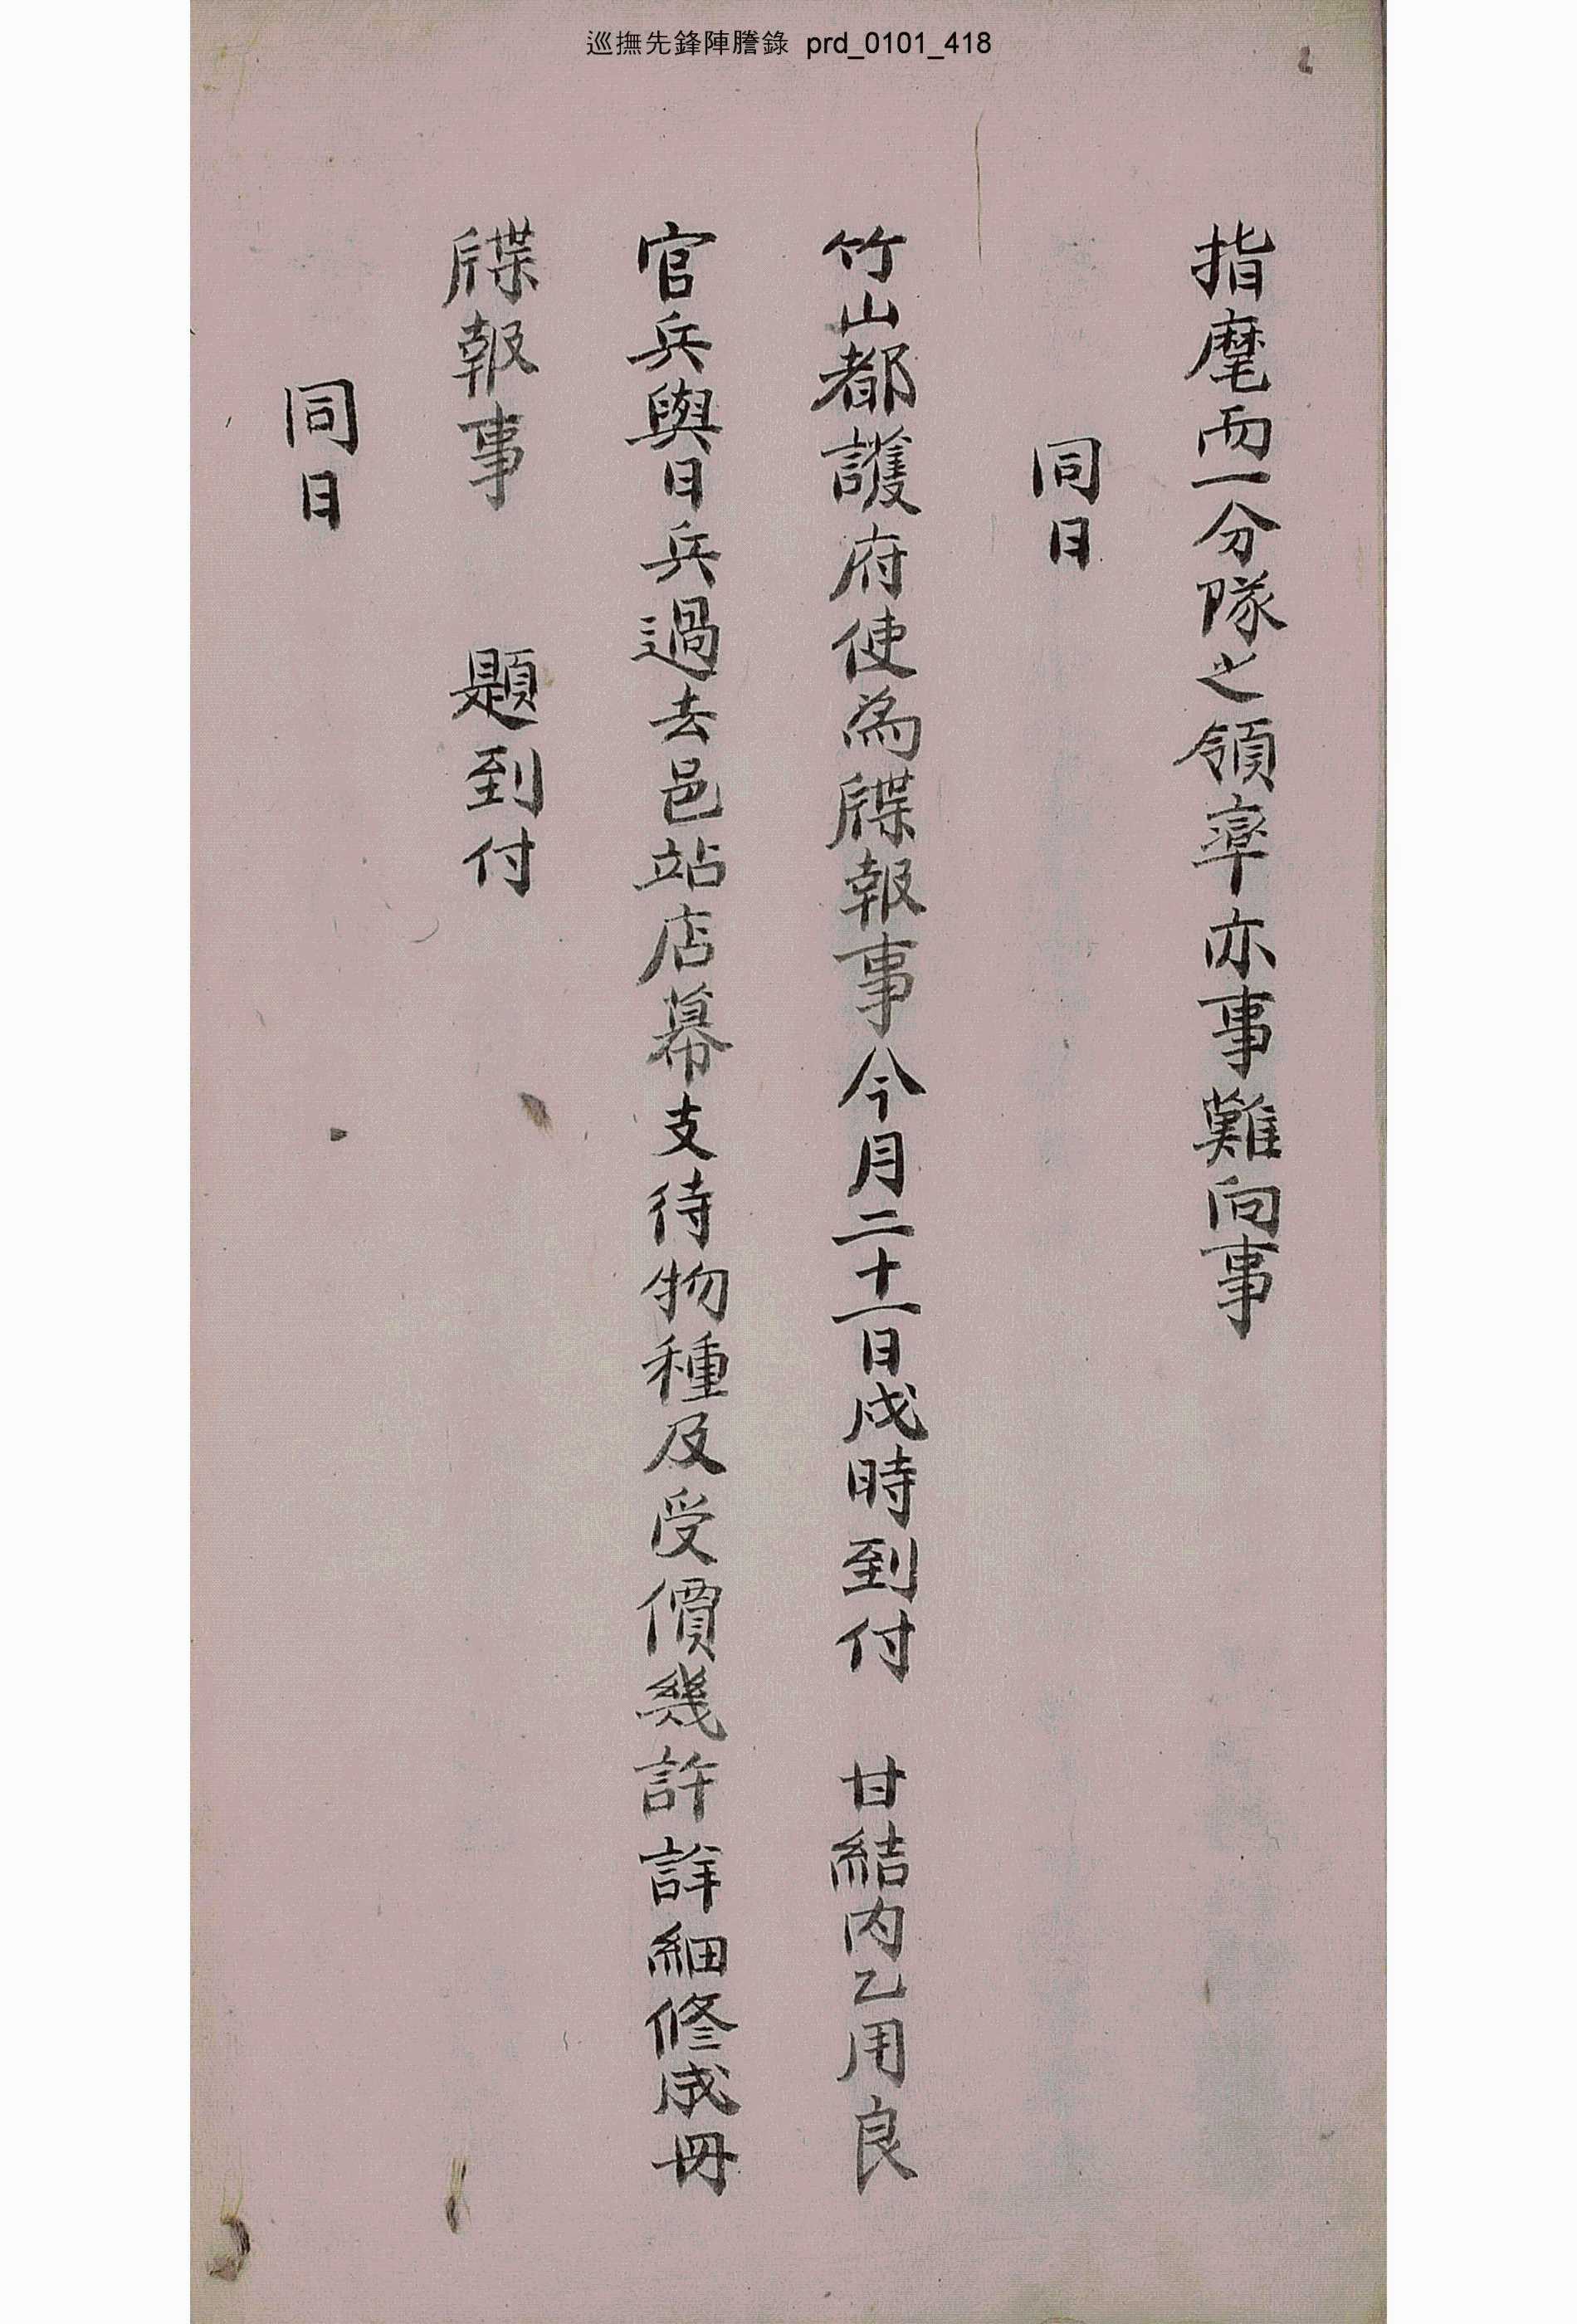 巡撫先鋒陣謄錄 prd_0101_418
指麾而一分隊之領率亦事難向事
同日
竹山都護府使為牒報事今月二十一日戌時到付 甘結內乙用良
官兵與日兵過去邑站店幕支待物種及受價幾許詳細修成冊
牒報事 題到付
同日